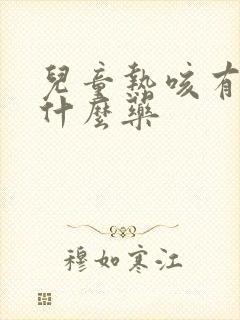 兒童熱咳有
什麼藥
穆如寒江